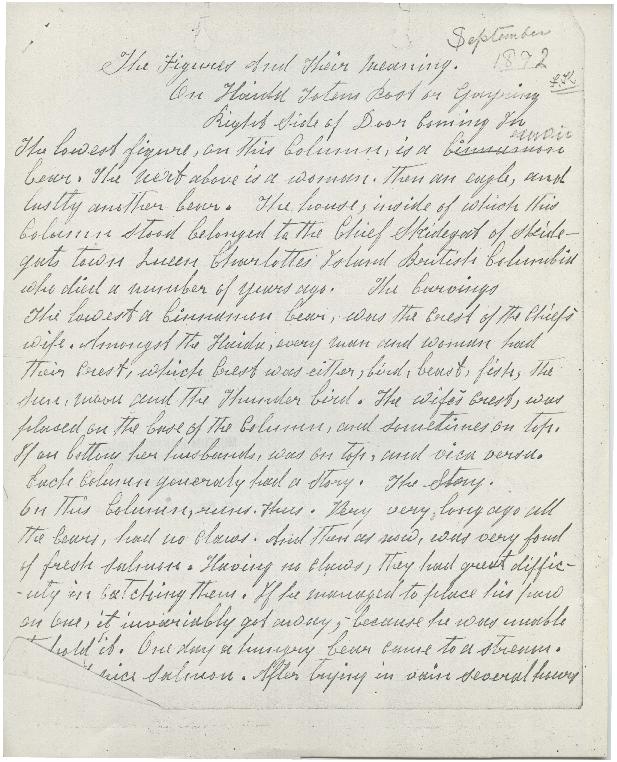 September
1872
The Figures And Their Meaning.
On Haida Totem Post or Gayring
Right Side of Door Coming In
The lowest figure, on this Column, is a Cinnamon
bear. The next above is a woman. then an eagle, and
lastly another bear. The house, inside of which this
Column stood belonged to the Chief Skidegat of Skide-
gats town Queen Charlottes Island British Columbia
who died a number of years ago. The Carvings
The lowest a Cinnamon bear, was the Crest of the Chiefs
wife. Amongst the Haida, every man and woman had
their Crest, which Crest was either, bird, beast, fish, the
Sun, moon and the Thunder bird. The wifes Crest, was
placed on the base of the Column, and sometimes on top.
If on bottom her husbands, was on top, and vica versa.
Each Column generaly had a Story. The Story.
On this Column, runs. thus. Very very, long ago all
the bears, had no claws. And then as now, was very fond
of fresh salmon. Having no claws, they had great diffic-
-uty in Catching them. If he managed to place his paw
on one, it invariably got away, because he was unable
hold it. One day a hungry bear came to a stream.
nice salmon. After trying in vain several hours